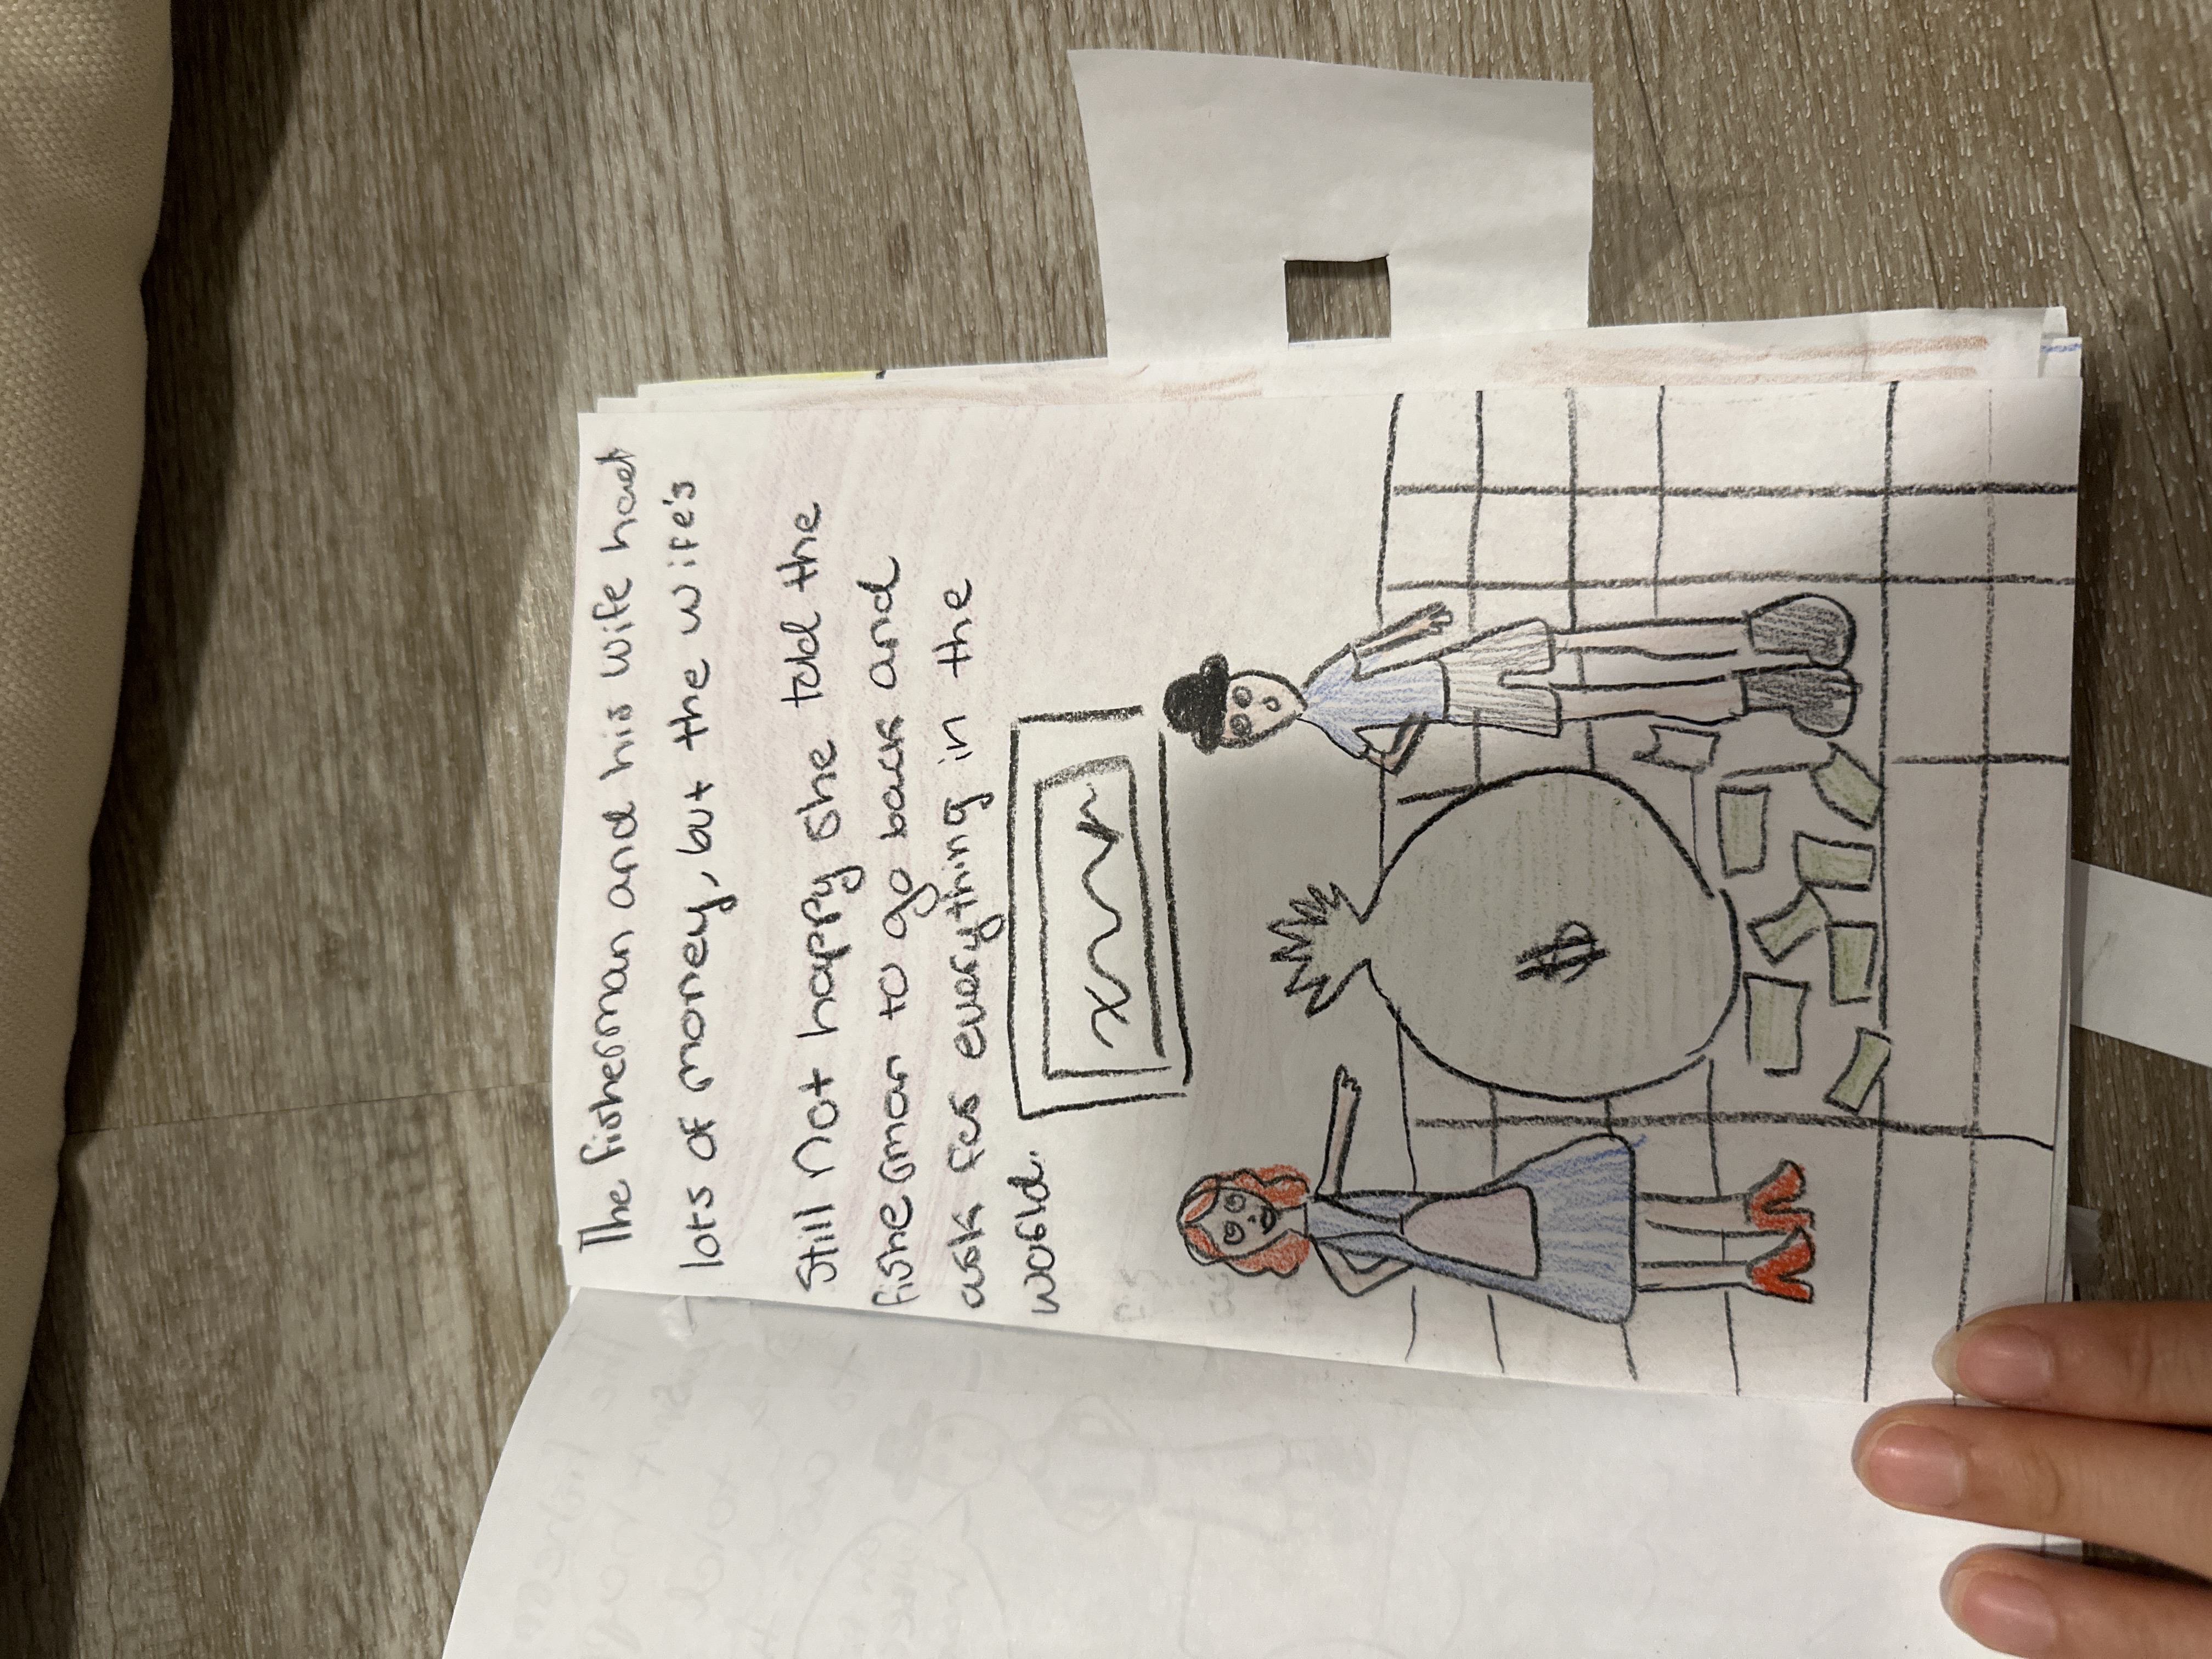 The fisherman and his wife had
lots of money, but the wife's
Still Not happy she told the
fisherman to go back and
ask for everything in the
world.
$